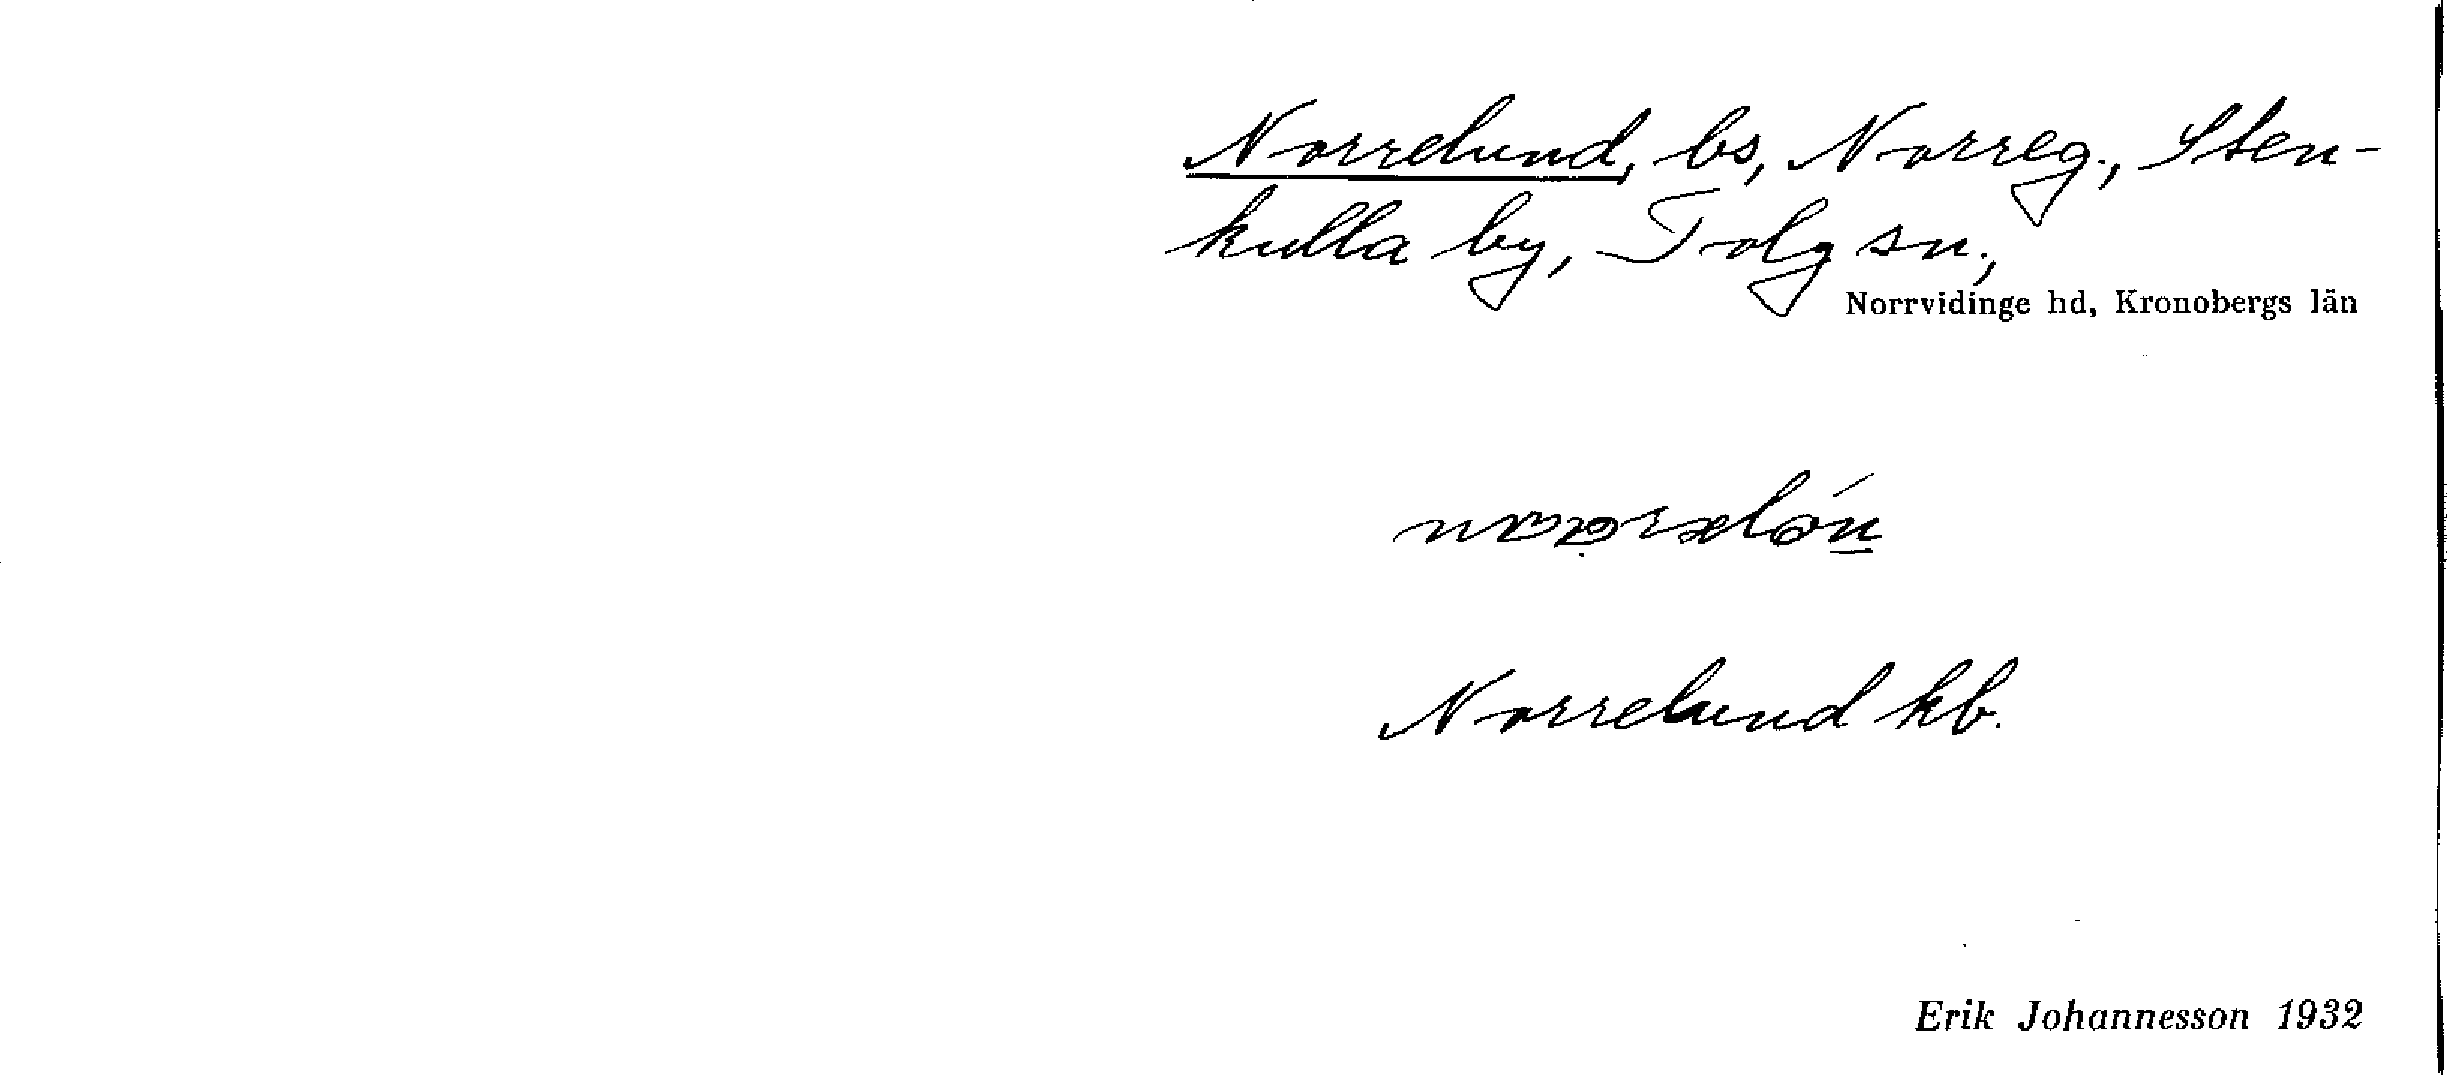 Norrelund, bs, Norreg., Sten-
kulla by, Tolg sn.,
Norrvidinge hd, Kronobergs län
Norrelund kb.
Erik Johannesson 1932